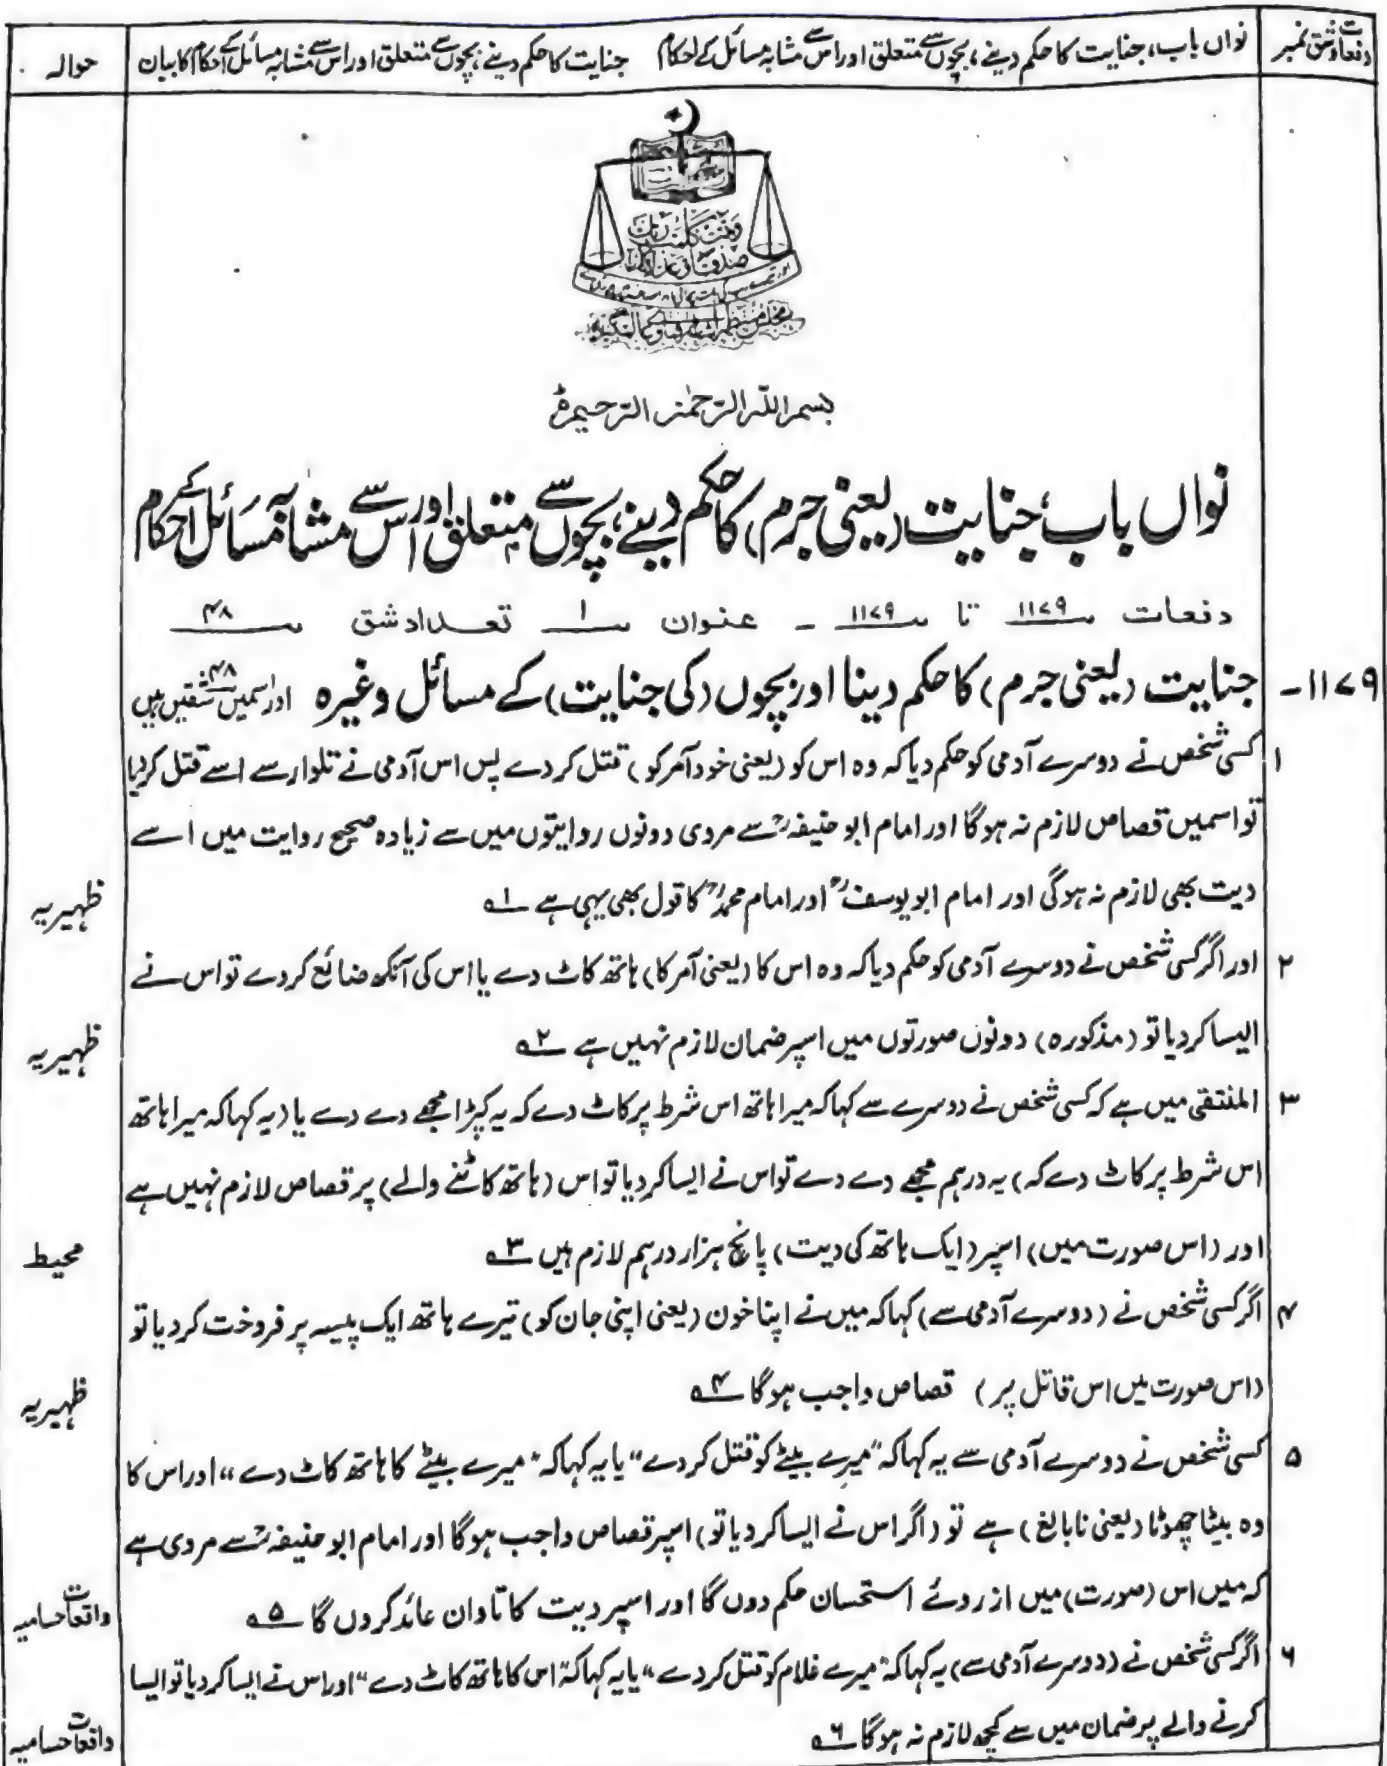 دفعات و شق نمبر
نواں باب، جنایت کا حکم دینے، بچوں سے متعلق اور اس سے مشابہ مسائل کے احکام
جنایت کا حکم دینے، بچوں سے متعلق اور اس سے مشابہ مسائل کے احکام کا بیان
حوالہ
وتمت کلمت ربک
صدقا وعدلا
بسم اللہ الرحمٰن الرحیم
نواں باب، جنایت (یعنی جرم) کا حکم دینے، بچوں سے متعلق اور اس سے مشابہ مسائل کے احکام
دفعات ۱۱۷۹ تا ۱۱۷۹ - عنوان ۱ تعداد شق ۴۸
۱۱۷۹- جنایت (یعنی جرم) کا حکم دینا اور بچوں (کی جنایت) کے مسائل وغیرہ اور اسمیں ۴۸ شقیں ہیں
۱ کسی شخص نے دوسرے آدمی کو حکم دیا کہ وہ اس کو (یعنی خود آمر کو) قتل کر دے پس اس آدمی نے تلوار سے اسے قتل کر دیا
تو اسمیں قصاص لازم نہ ہوگا اور امام ابو حنیفہؒ سے مروی دونوں روایتوں میں سے زیادہ صحیح روایت میں اسے
دیت بھی لازم نہ ہوگی اور امام ابو یوسفؒ اور امام محمدؒ کا قول بھی یہی ہے ؁۱ ظہیریہ
۲ اور اگر کسی شخص نے دوسرے آدمی کو حکم دیا کہ وہ اس کا (یعنی آمر کا) ہاتھ کاٹ دے یا اس کی آنکھ ضائع کر دے تو اس نے
ایسا کر دیا تو (مذکورہ) دونوں صورتوں میں اسپر ضمان لازم نہیں ہے ؁۲ ظہیریہ
۳ المنتقی میں ہے کہ کسی شخص نے دوسرے سے کہا کہ میرا ہاتھ اس شرط پر کاٹ دے کہ یہ کپڑا مجھے دے دے یا (یہ کہا کہ میرا ہاتھ
اس شرط پر کاٹ دے کہ) یہ درہم مجھے دے دے تو اس نے ایسا کر دیا تو اس (ہاتھ کاٹنے والے) پر قصاص لازم نہیں ہے
اور (اس صورت میں) اسپر (ایک ہاتھ کی دیت) پانچ ہزار درہم لازم ہیں ؁۳ محیط
۴ اگر کسی شخص نے (دوسرے آدمی سے) کہا کہ میں نے اپنا خون (یعنی اپنی جان کو) تیرے ہاتھ ایک پیسہ پر فروخت کر دیا تو
(اس صورت میں اس قاتل پر) قصاص واجب ہوگا ؁۴ ظہیریہ
۵ کسی شخص نے دوسرے آدمی سے یہ کہا کہ "میرے بیٹے کو قتل کر دے" یا یہ کہا کہ "میرے بیٹے کا ہاتھ کاٹ دے" اور اس کا
وہ بیٹا چھوٹا (یعنی نابالغ) ہے تو (اگر اس نے ایسا کر دیا تو) اسپر قصاص واجب ہوگا اور امام ابو حنیفہؒ سے مروی ہے
کہ میں اس (صورت) میں از روئے استحسان حکم دوں گا اور اسپر دیت کا تاوان عائد کروں گا ؁۵ واقعات حسامیہ
۶ اگر کسی شخص نے (دوسرے آدمی سے) یہ کہا کہ "میرے غلام کو قتل کر دے" یا یہ کہا کہ "اس کا ہاتھ کاٹ دے" اور اس نے ایسا کر دیا تو ایسا
کرنے والے پر ضمان میں سے کچھ لازم نہ ہوگا ؁۶ واقعات حسامیہ